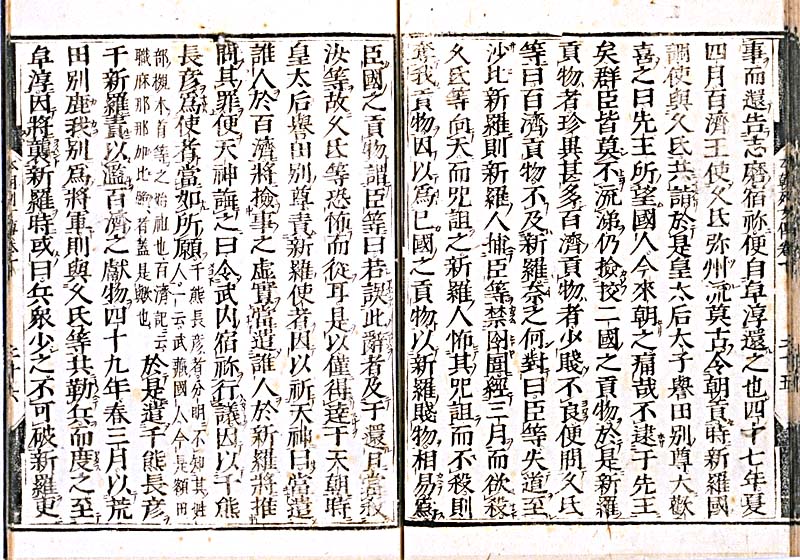 事而還告志磨宿祢便自卓淳還之也四十七年夏
四月百濟王使久氐弥州流莫古令朝貢時新羅國
調使與久氐共詣於是皇太后太子譽田別尊大歡
喜之曰先王所望國人今來朝之痛哉不逮于先王
矣群臣皆莫不流涕仍撿挍二國之貢物於是新羅
貢物者珍異甚多百濟貢物者少賤不良便問久氐
等曰百濟貢物不及新羅奈之何對曰臣等失道至
沙比新羅則新羅人捕臣等禁囹圄經三月而欲殺
久氐等向天而呪詛之新羅人怖其呪詛而不殺則
奪我貢物因以為己國之貢物以新羅賤物相易為
臣國之貢物謂臣等曰若誤此辭者及于還日當殺
汝等故久氐等恐怖而從耳是以僅得達于天朝時
皇太后譽田別尊責新羅使者因以祈天神曰當遣
誰人於百濟將撿事之虛實當遣誰人於新羅將推
問其罪便天神誨之曰令武内宿祢行議因以千熊
長彥為使者當如所願
千熊長彥者分明不知其姓
人一云武藏國人今是額田
部槻本首等之始祖也百濟記云
職麻那那加比跪者蓋是歟也
於是遣千熊長彥
于新羅責以濫百濟之獻物四十九年春三月以荒
田別鹿我別為將軍則與久氐等共勒兵而度之至
卓淳因將襲新羅時或曰兵眾少之不可破新羅更